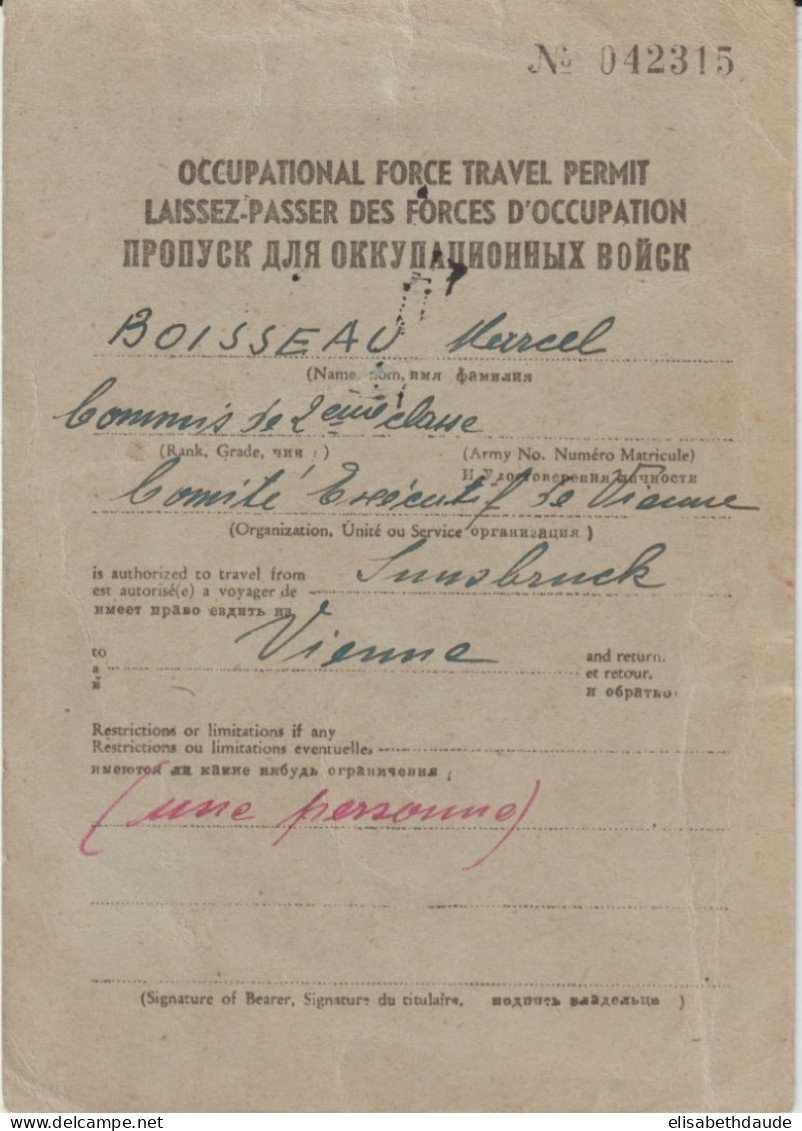 № 042315
OCCUPATIONAL FORCE TRAVEL PERMIT
LAISSEZ-PASSER DES FORCES D'OCCUPATION
ПРОПУСК ДЛЯ ОККУПАЦИОННЫХ ВОЙСК
BOISSEAU Marcel
(Name, nom, имя фамилия
Commis de 2eme classe
(Rank, Grade, чин :) (Army No. Numéro Matricule)
И Удостоверения личности
Comité Exécutif de Vienne
(Organization, Unité ou Service организация)
is authorized to travel from Innsbruck
est autorisé(e) a voyager de
имеет право ездить из
to Vienne and return.
а et retour.
в и обратно.
Restrictions or limitations if any
Restrictions ou limitations eventuelles
имеются ли какие нибудь ограничения
(une personne)
(Signature of Bearer, Signature du titulaire, подпись владельца)
elisabethdaude